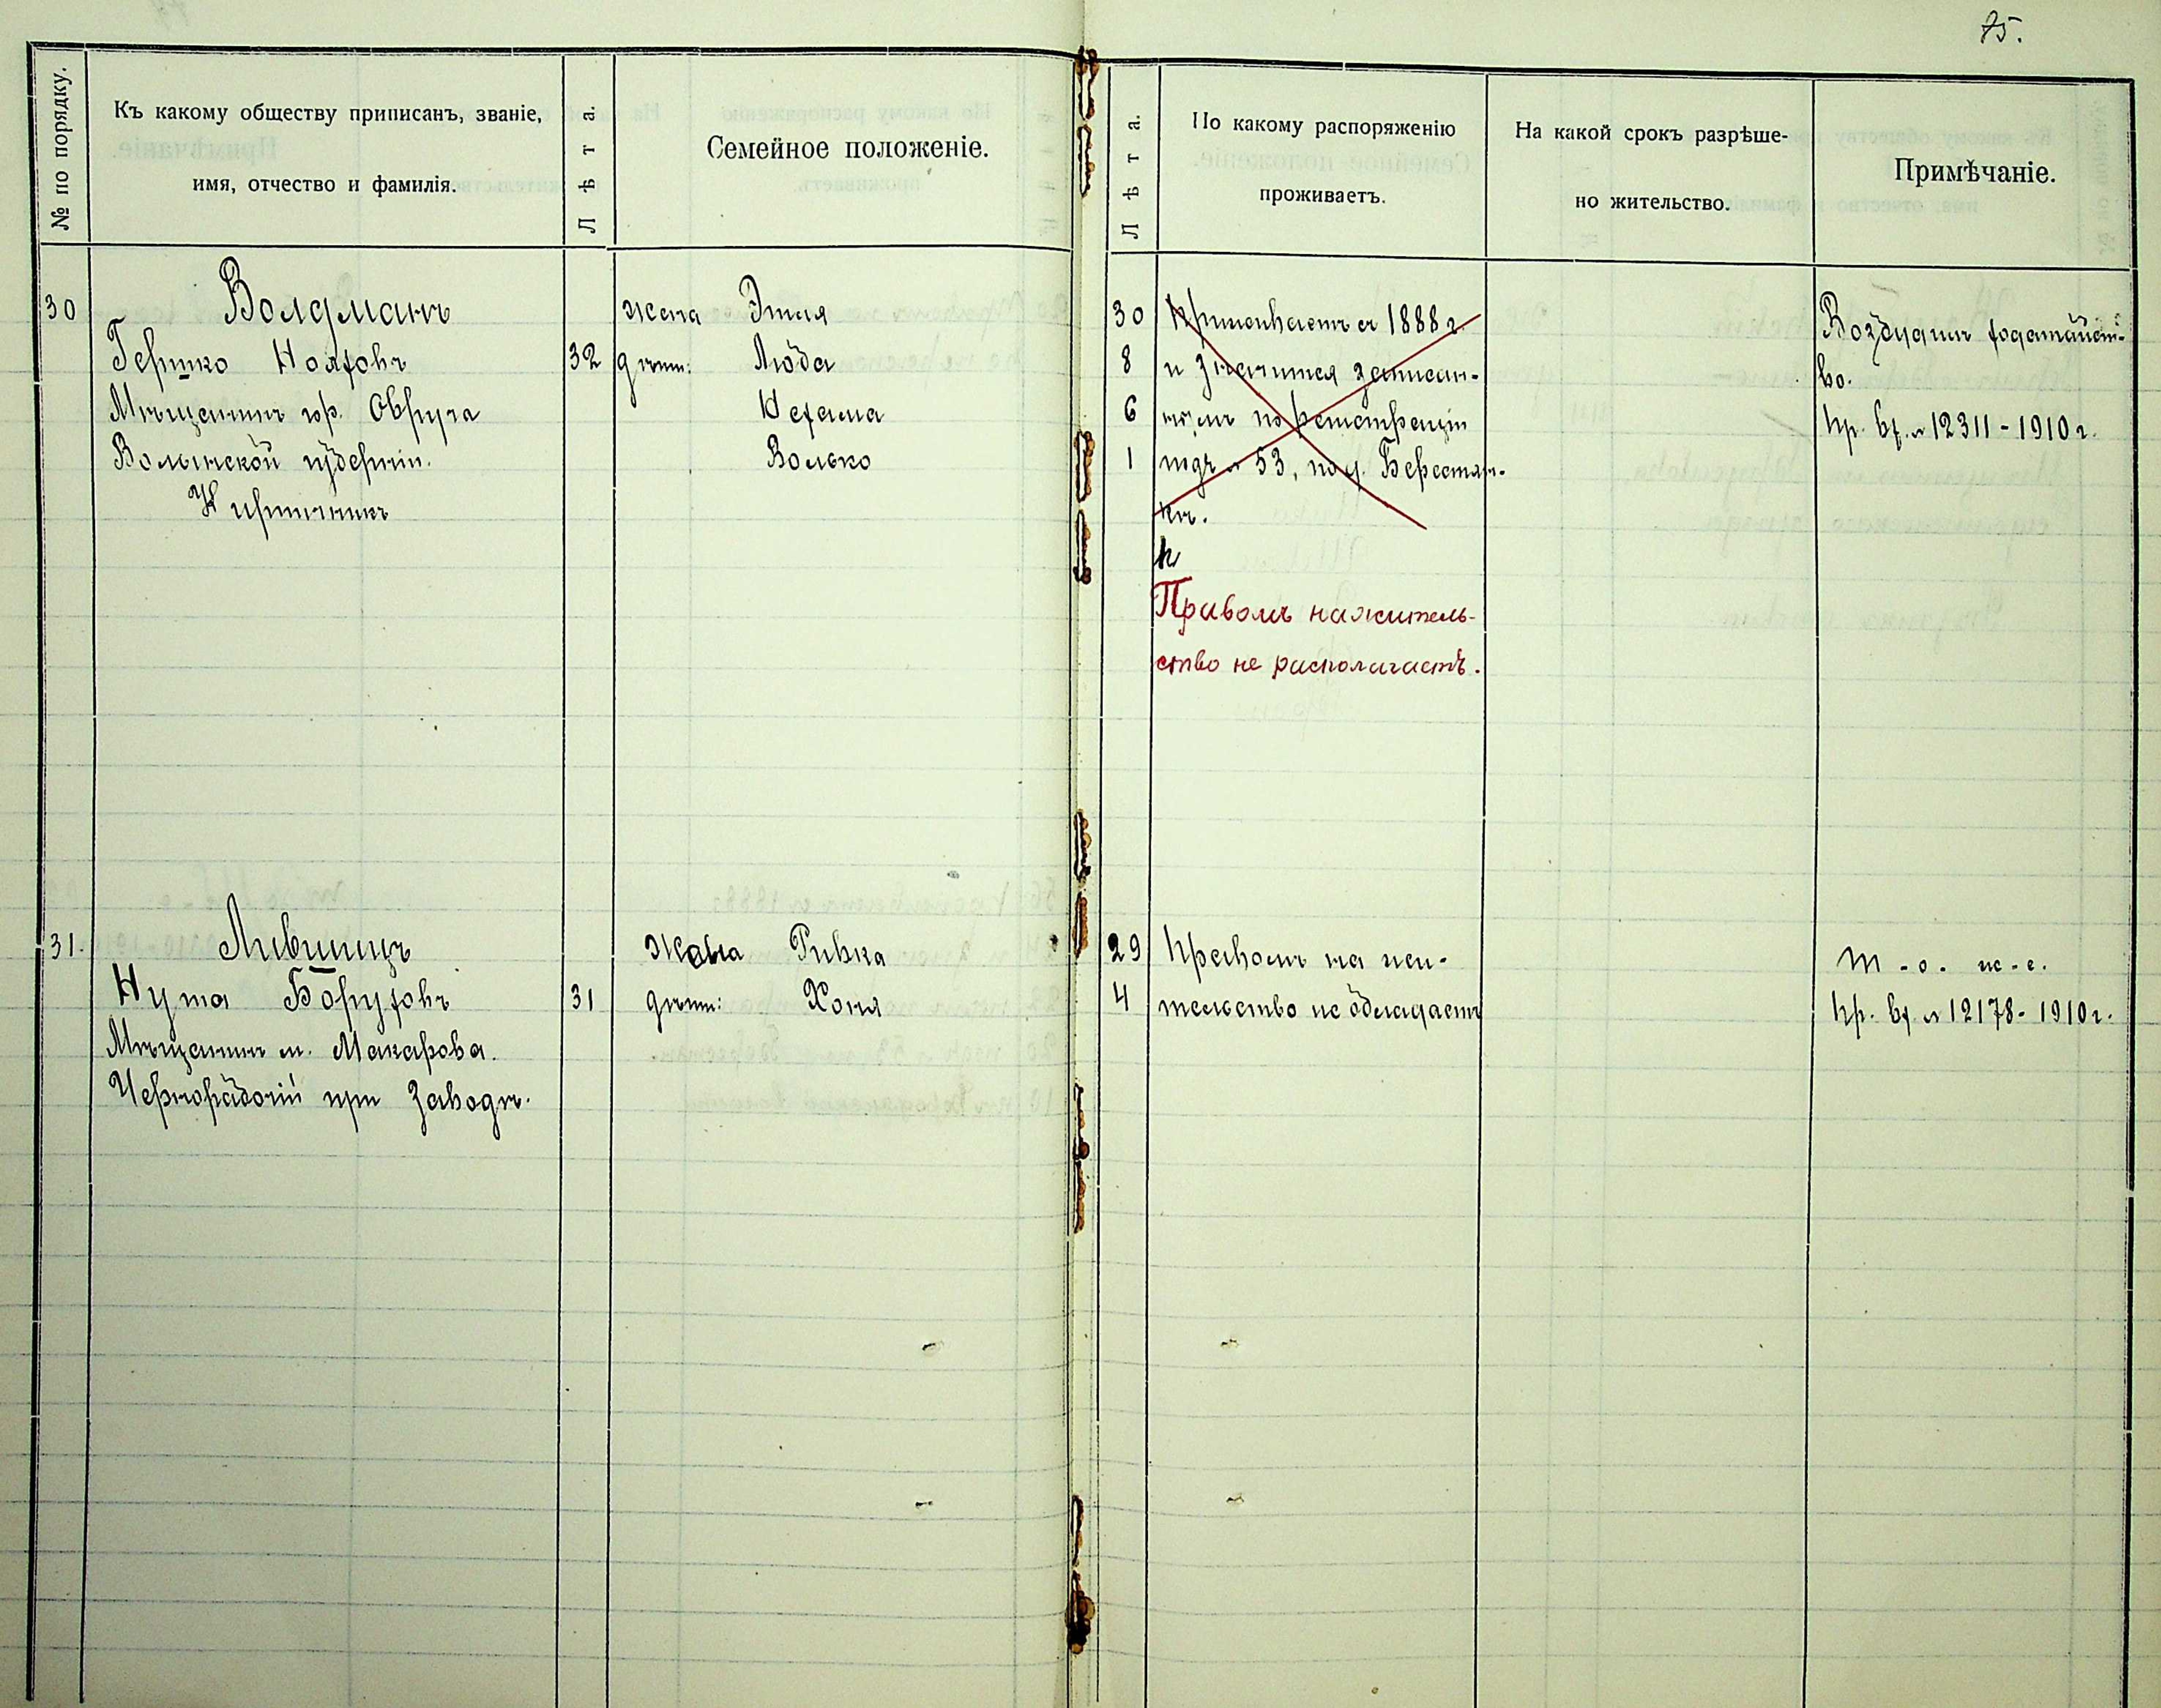 75.
№ по порядку.
Къ какому обществу приписанъ, званіе,
имя, отчество и фамилія.
Лѣта.
Семейное положеніе.
Лѣта.
По какому распоряженію
проживаетъ.
На какой срокъ разрѣше-
но жительство.
Примѣчаніе.
30
Волдманъ
Гершко Нояховъ
Мѣщанинъ гор. Овруча
Волынской губерніи.
Кирпичникъ
32
жена Этля
дѣти: Люба
Нехама
Волько
30
8
6
1
Проживаетъ съ 1888 г.
и значится записан-
нымъ по регистраціи
подъ № 53, по д. Берестян-
кѣ.
П
Правомъ на житель-
ство не располагаетъ.
Возбудилъ ходатайст-
во.
пр. вх. № 12311 - 1910 г.
31.
Лившицъ
Нута Боруховъ
Мѣщанинъ м. Макарова.
Чернорабочій при заводѣ.
31
Жена Ривка
дѣти: Хоня
29
4
Правомъ на жи-
тельство не обладаетъ
т - о. ж - е.
пр. вх. № 12178 - 1910 г.